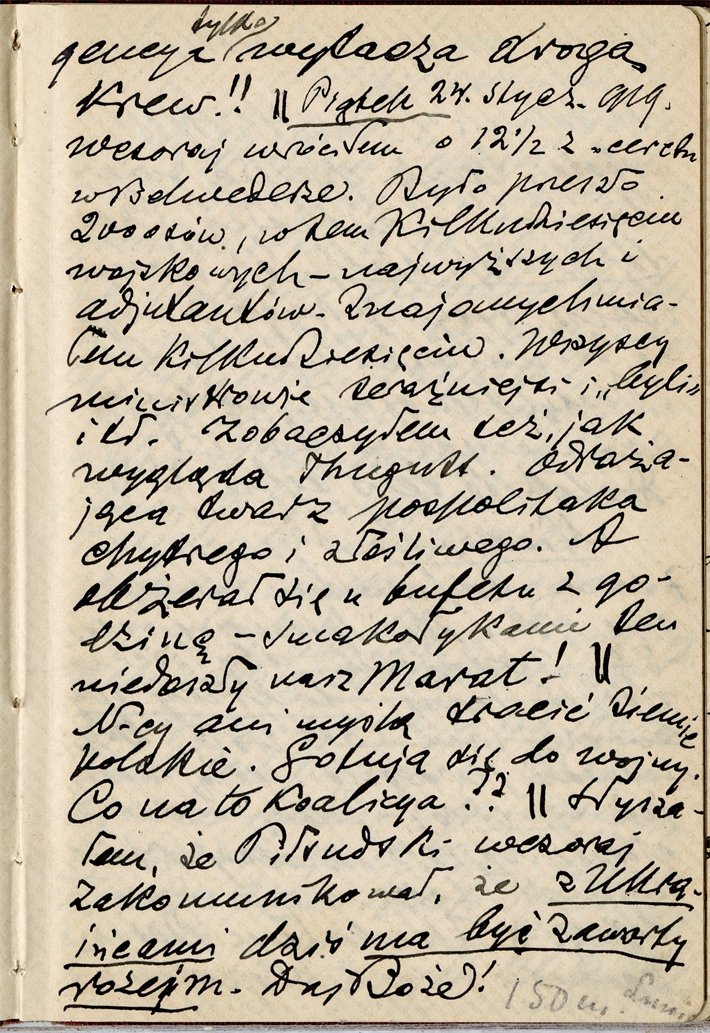 tylko
gencya wytacza drogą
krew.!! || Piątek 24. stycz. 919.
wczoraj wróciłem o 12 1/2 z „cerclu
w Belwederze. Było przeszło
200 osób, w tem kilkudziesięciu
wojskowych – najwyższych i
adjutantów. Znajomych mia-
łem kilkudziesięciu. Wszyscy
ministrowie teraźniejsi i „byli”
itd. Zobaczyłem też, jak
wygląda Thugutt. Odraża-
jąca twarz pospolitaka
chytrego i złośliwego. A
obżerał się u bufetu z go-
dzinę – smakołykami ten
niedoszły nasz Marat! ||
N-cy ani myślą tracić ziemię
polskie. Gotują się do wojny.
Co na to koalicya ?? || Słysza-
łem, że Piłsudski wczoraj
zakomunikował, że z Ukra-
ińcami dziś ma być zawarty
rozejm. Daj Boże!
150 m.